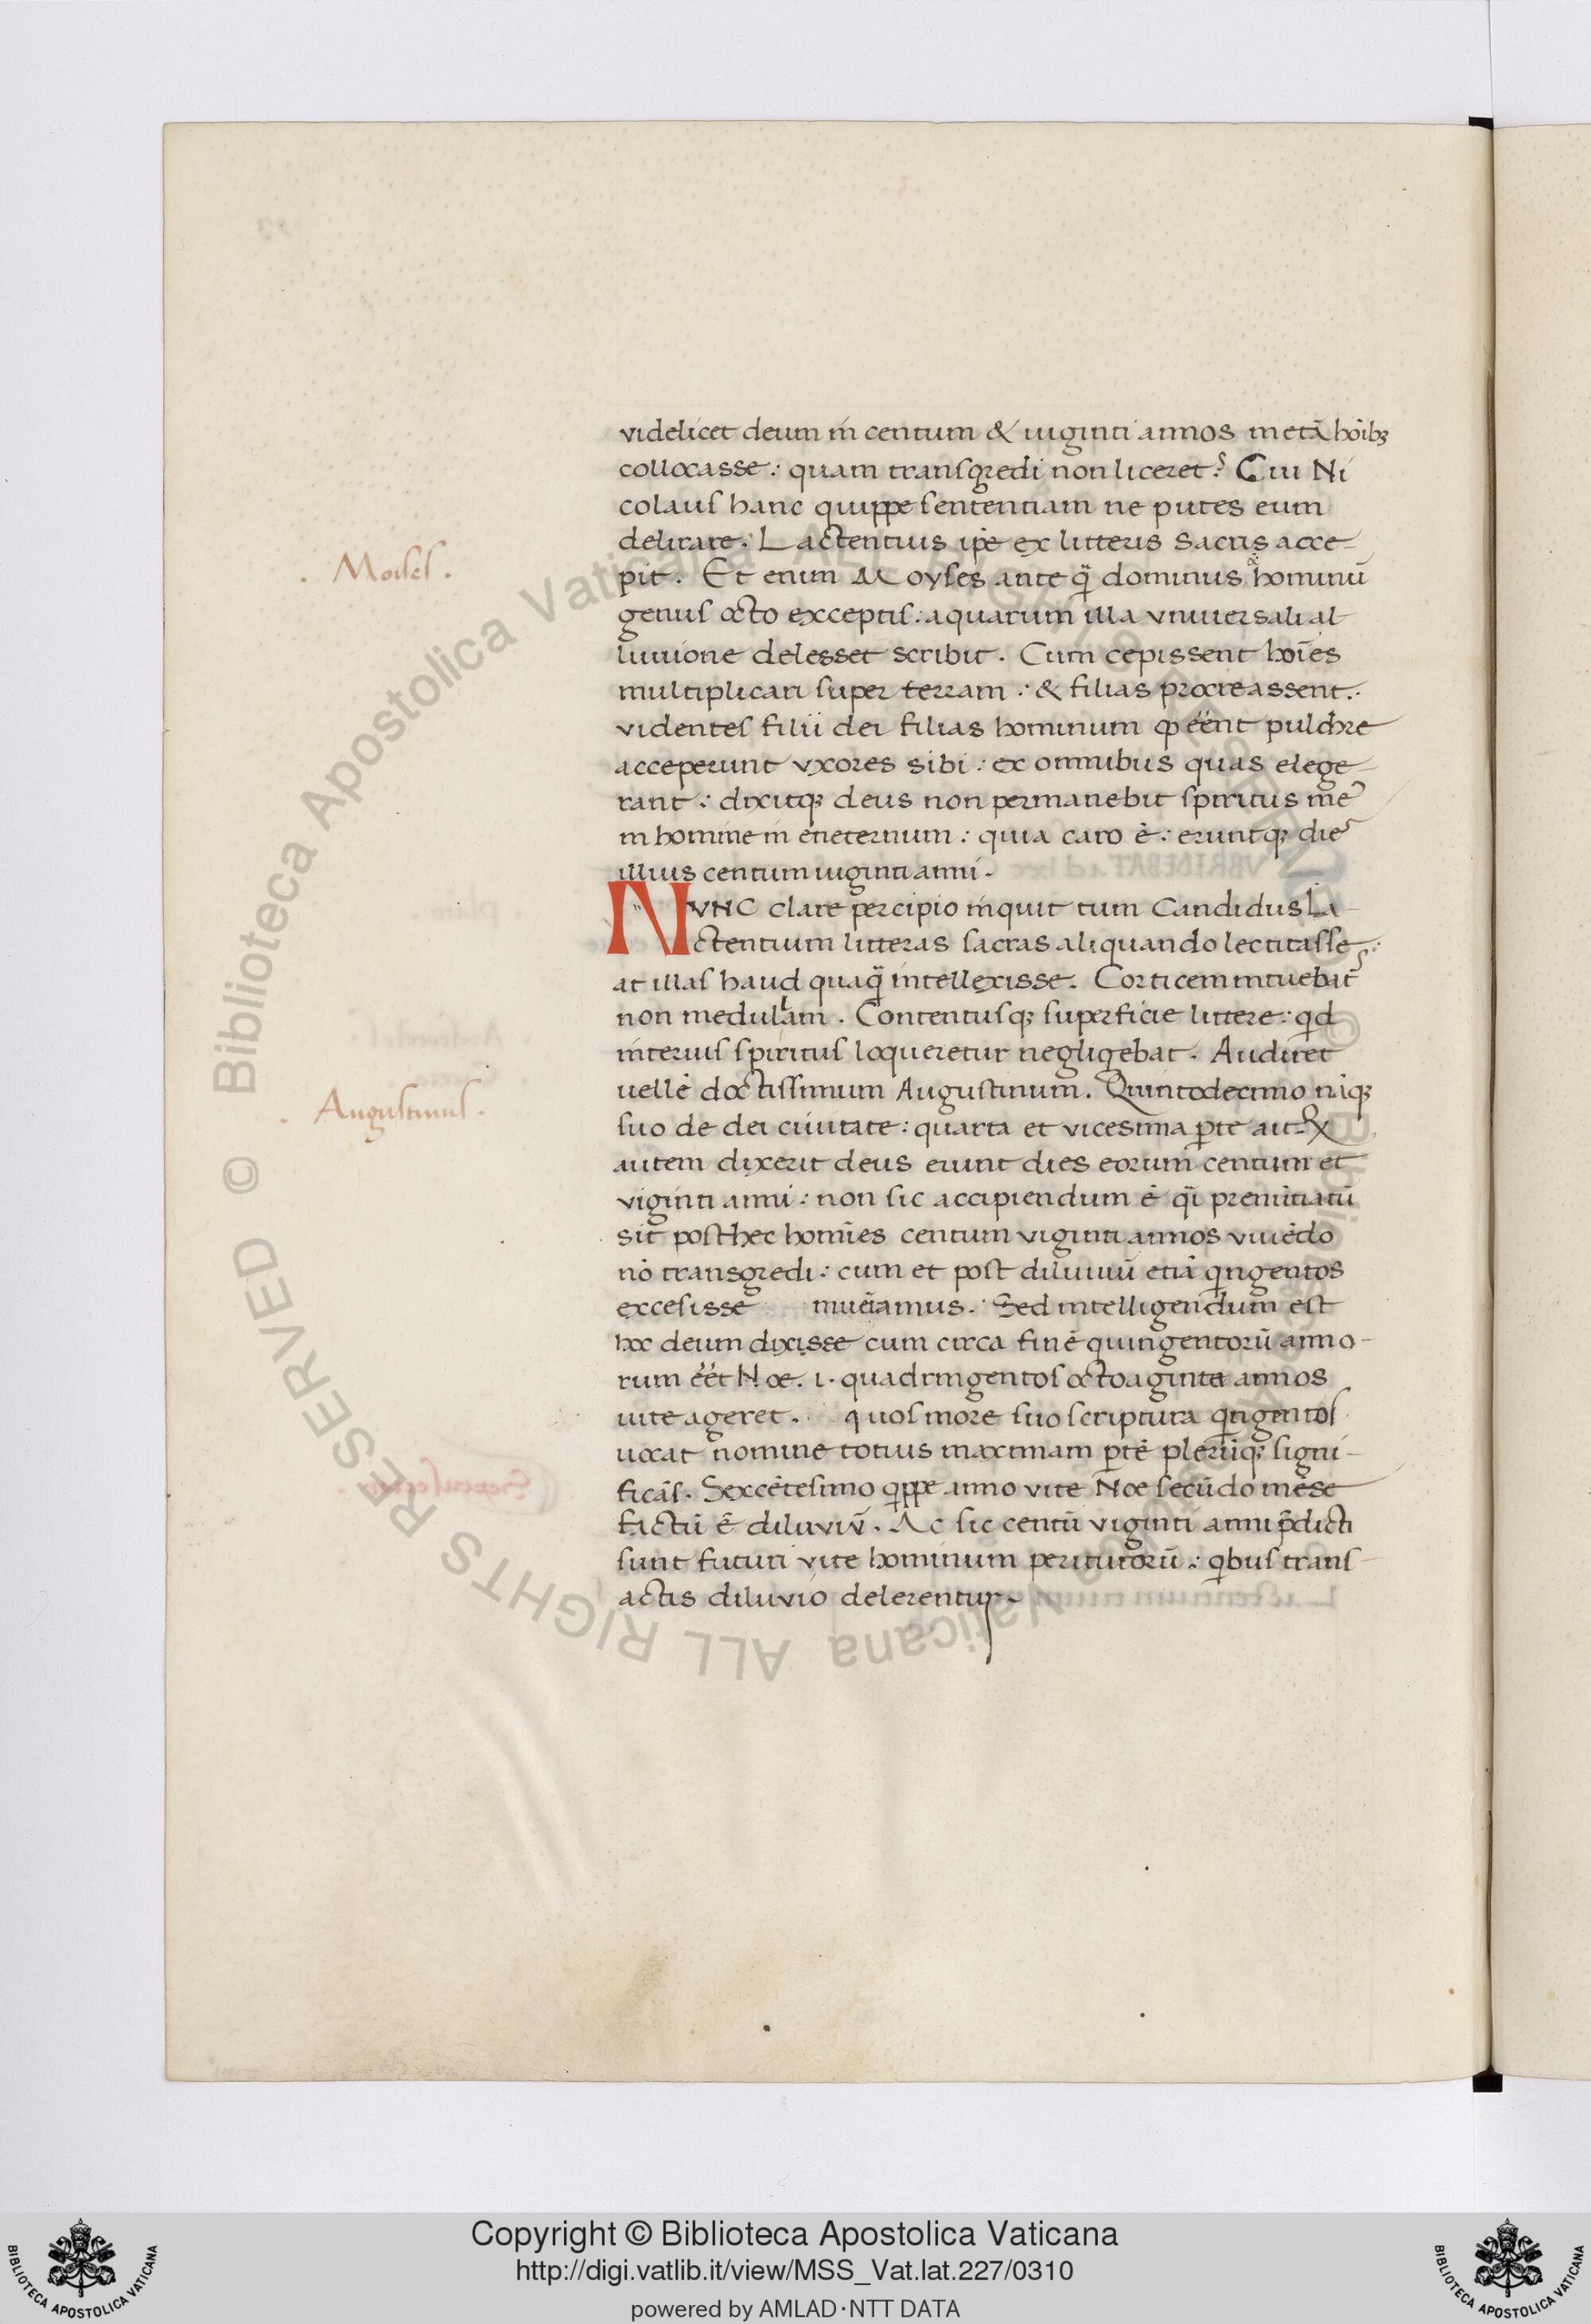 videlicet deum in centum & uiginti annos metā hoībꝫ
collocasse: quam transgredi non liceret? Cui Ni
colaus hanc quippe sententiam ne putes eum
delirare. Lactentius ip̄e ex litteris sacris acce-
. Moises .
pit. Et enim Moyses ante q̄ dominus hominū
genus octo exceptis: aquarum illa vniuersali al
luuione delesset scribit. Cum cepissent hoīes
multiplicari super terram: & filias procreassent:
videntes filii dei filias hominum ꝙ eēnt pulchre
acceperunt vxores sibi: ex omnibus quas elege-
rant: dixitqꝫ deus non permanebit spiritus meꝰ
in homine in eneternum: quia caro ē: eruntqꝫ dies
illius centum uiginti anni.
NVNC clare percipio inquit tum Candidus La-
ctentium litteras sacras aliquando lectitasse:
at illas haud quaq̄ intellexisse. Corticem intuebat
non medulam. Contentusqꝫ superficie littere: qd
interius spiritus loqueretur negligebat. Audiret
. Augustinus .
uellē doctissimum Augustinum. Quintodecimo nāqꝫ
suo de dei ciuitate: quarta et vicesima ꝑte ait.
autem dixerit deus erunt dies eorum centum et
viginti anni: non sic accipiendum ē qī prenūtiatū
sit posthec homīes centum viginti annos viuēdo
nō transgredi: cum et post diluuiū etiā qngentos
excesisse inueīamus. Sed intelligendum est
hoc deum dixisse cum circa finē quingentorū anno-
rum eēt Noe. i. quadringentos octoaginta annos
uite ageret. quos more suo scriptura qngentos
uocat nomine totius maximam ꝑtē plerūqꝫ signi-
ficās. Sexcētesimo qppe anno vite Noe secūdo mēse
factū ē diluviū. Ac sic centū viginti anni p̄dicti
sunt futuri vite hominum periturorū: qbus trans-
actis diluvio delerentur.
© Biblioteca Apostolica Vaticana ALL RIGHTS RESERVED
Copyright © Biblioteca Apostolica Vaticana
http://digi.vatlib.it/view/MSS_Vat.lat.227/0310
powered by AMLAD·NTT DATA
BIBLIOTECA APOSTOLICA VATICANA
BIBLIOTECA APOSTOLICA VATICANA